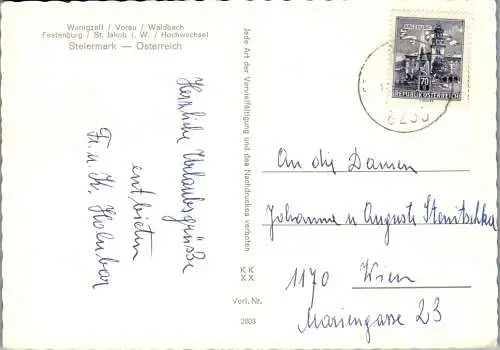 Wenigzell / Vorau / Waldbach
Festenburg / St. Jakob i. W. / Hochwechsel
Steiermark — Österreich
Herzliche Urlaubsgrüße
entbieten
Fr. u. K. Holubar
Jede Art der Vervielfältigung und des Nachdruckes verboten
KK
XX
Verl. Nr.
2803
70
REPUBLIK ÖSTERREICH
An die Damen
Johanna u Auguste
1170 Wien
Mariengasse 23